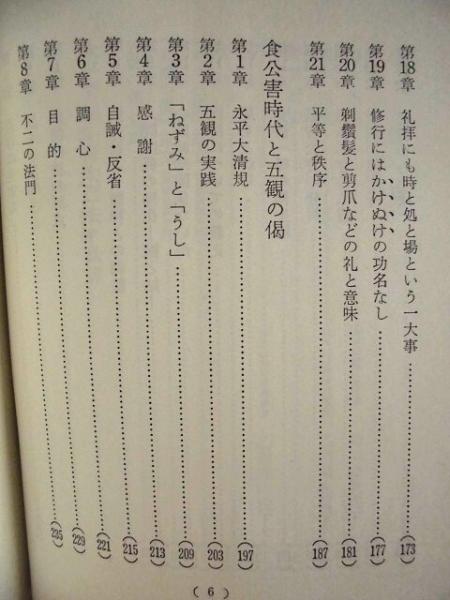 第18章 礼拝にも時と処と場という一大事……(173)
第19章 修行にはかけぬけの功名なし……(177)
第20章 剃鬚髪と剪爪などの礼と意味……(181)
第21章 平等と秩序……(187)
食公害時代と五観の偈
第1章 永平大清規……(197)
第2章 五観の実践……(203)
第3章 「ねずみ」と「うし」……(209)
第4章 感謝……(213)
第5章 自誡・反省……(215)
第6章 調心……(221)
第7章 目的……(229)
第8章 不二の法門……(235)
(6)